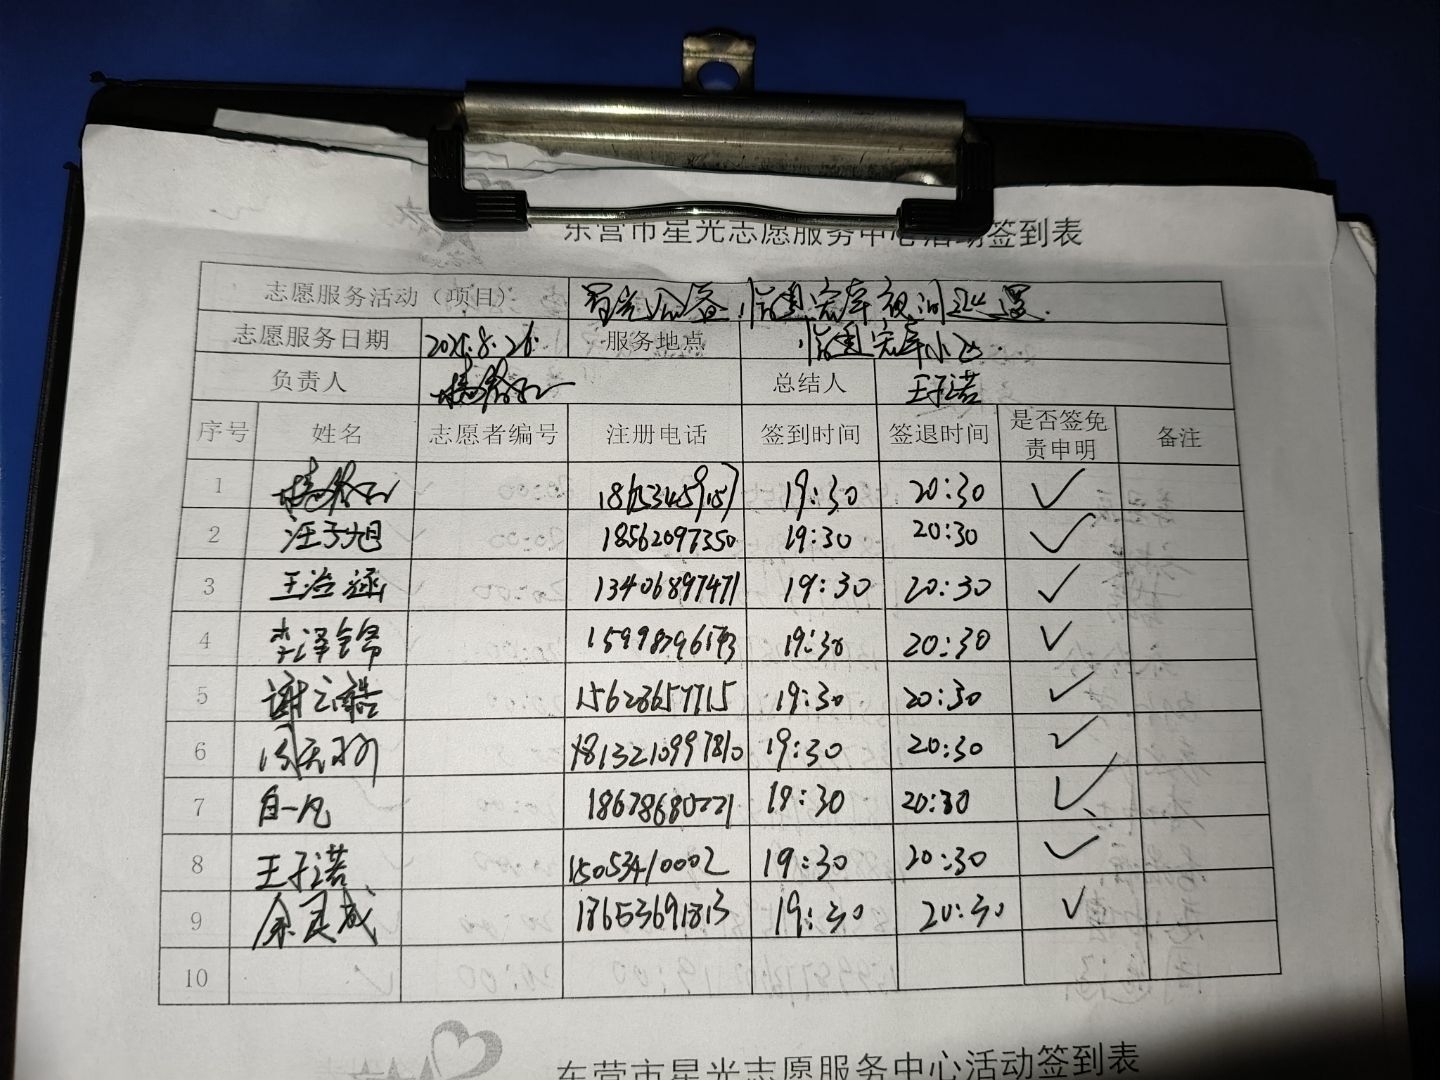 东营市星光志愿服务中心活动签到表
志愿服务活动（项目）
志愿服务日期 服务地点
负责人 总结人 王子诺
序号 姓名 志愿者编号 注册电话 签到时间 签退时间 是否签免责申明 备注
1 19:30 20:30 ✓
2 汪子旭 18562097350 19:30 20:30 ✓
3 王治涵 13406897471 19:30 20:30 ✓
4 李泽锦 19:30 20:30 ✓
5 15628657715 19:30 20:30 ✓
6 19:30 20:30 ✓
7 自一凡 18678680221 19:30 20:30 ✓
8 王子诺 15053410002 19:30 20:30 ✓
9 18653691813 19:30 20:30 ✓
10
东营市星光志愿服务中心活动签到表